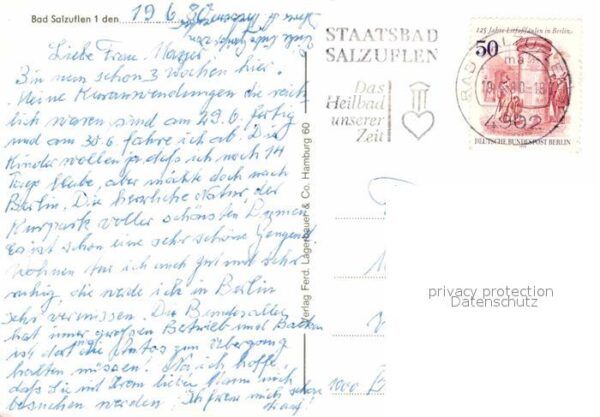 Bad Salzuflen 1 den 19 6 80
Liebe Frau
Bin nun schon 3 Wochen hier.
Meine Kuranwendungen die reich
lich waren sind am 29.6. fertig
und am 30.6 fahre ich ab. Die
Kinder wollen ja daß ich noch 14
Tage bleibe, aber möchte doch nach
Berlin. Die herrliche Natur, der
Kurpark voller schönsten Blumen
Es ist schon eine sehr schöne Gengend
wohnen tue ich auch gut und sehr
ruhig, die werde ich in Berlin
sehr vermissen. Die Bundesallee
hat immer großen Betrieb und Balkon
ist dort die Autos zum Übergang
halten müssen! Na, ich hoffe,
daß Sie mit Ihrem lieben Mann mich
besuchen werden, Ich freue mich schon
drauf!
Verlag Ferd. Lagerbauer & Co. Hamburg 60
STAATSBAD
SALZUFLEN
Das
Heilbad
unserer
Zeit
125 Jahre Litfaßsäulen in Berlin
50
DEUTSCHE BUNDESPOST BERLIN
BAD SALZUFLEN
4902
privacy protection
Datenschutz
1000 B